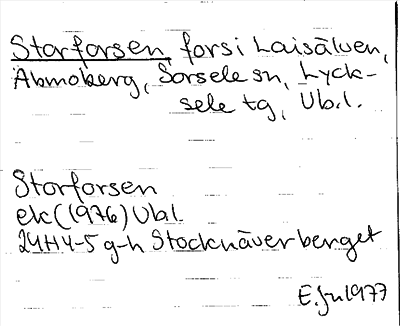 Storforsen, fors i Laisälven,
Abmoberg, Sorsele sn, Lyck-
sele tg, Vb.l.
Storforsen
ek (1976) Vb.l.
24H4-5 g-h Stocknäverberget
1977